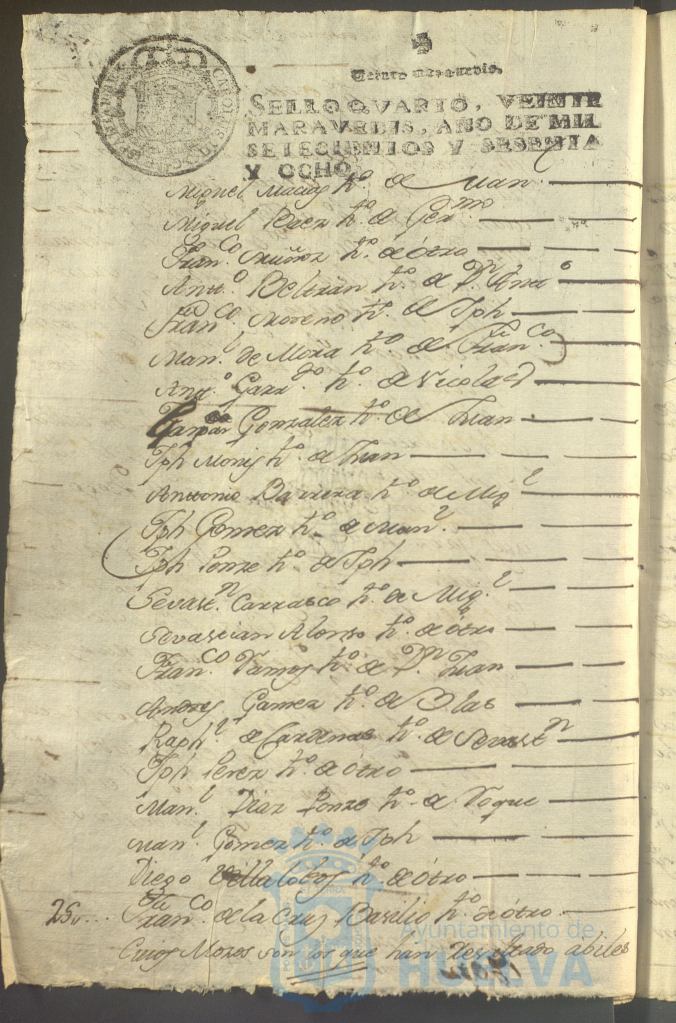 SELLO QVARTO, VEINTE
MARAVEDIS, AÑO DE MIL
SETECIENTOS Y SESENTA
Y OCHO
Miguel Macias hº. de Juan
Miguel Baez hº. de Germº
Franco Muñoz hº. de otro
Antº. Beltran hº. de Dn
Franco Moreno hº. de Jph
Manl. de Mora hº. de Franco.
Antº. Garrdo hº. de Nicolas
Gaspar Gonzalez hº. de Juan
Jph hº. de Juan
Anttonio Barrera hº. de Migl
Jph Gomez hº. de Manl.
Jph Ponze hº. de Jph
Sevastn. Carrasco hº. de Migl.
Sevastian Alonso hº. de otro
Franco Ramos hº. de Dn Juan
Andres Gomez hº. de Blas
Raphl. de Cardenas hº. de Sevastn
Jph Perez hº. de otro
Manl. Diaz Ponze hº. de Roque
Manl. Gomez hº. de Jph
Diego Villalobos hº. de otro
25,,.... Franco. de la Cruz Basilio hº. de otro
Cuios Mozos son los que han abiles
Ayuntamiento de
HUELVA